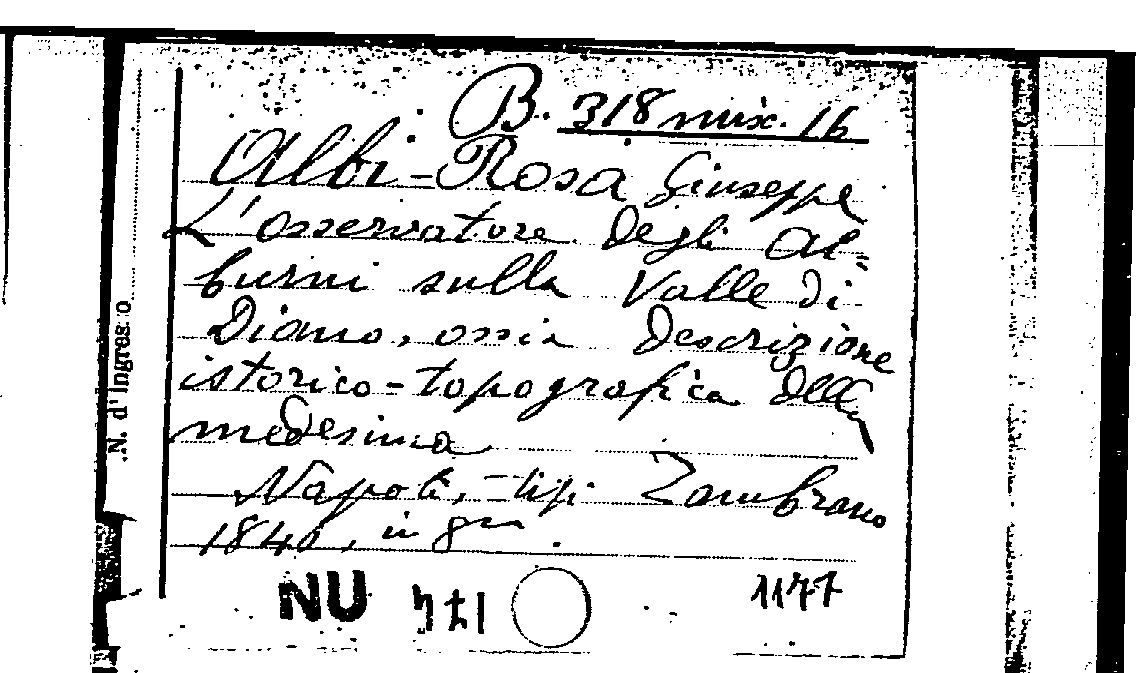 B. 318 misc. 16
Albi-Rosa Giuseppe
L'osservatore degli Al-
burni sulla Valle di
Diano, ossia descrizione
istorico-topografica della
medesima
Napoli, tip. Zambrano
1840, in 8vo.
NU 1177
N. d'Ingresso